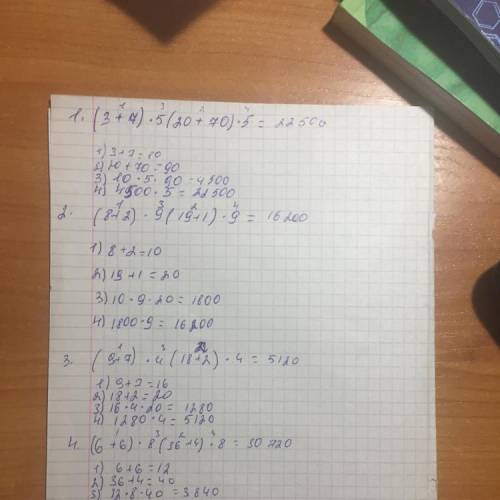 1. (3+7)·5(20+70)·5=22500
1 3 2 4
1) 3+7=10
2) 20+70=90
3) 10·5·90=4500
4) 4500·5=22500
2. (8+2)·9(19+1)·9=16200
1 3 2 4
1) 8+2=10
2) 19+1=20
3) 10·9·20=1800
4) 1800·9=16200
3. (9+7)·4(18+2)·4=5120
1 3 2
1) 9+7=16
2) 18+2=20
3) 16·4·20=1280
4) 1280·4=5120
4. (6+6)·8(36+4)·8=30720
1 3 2 4
1) 6+6=12
2) 36+4=40
3) 12·8·40=3840